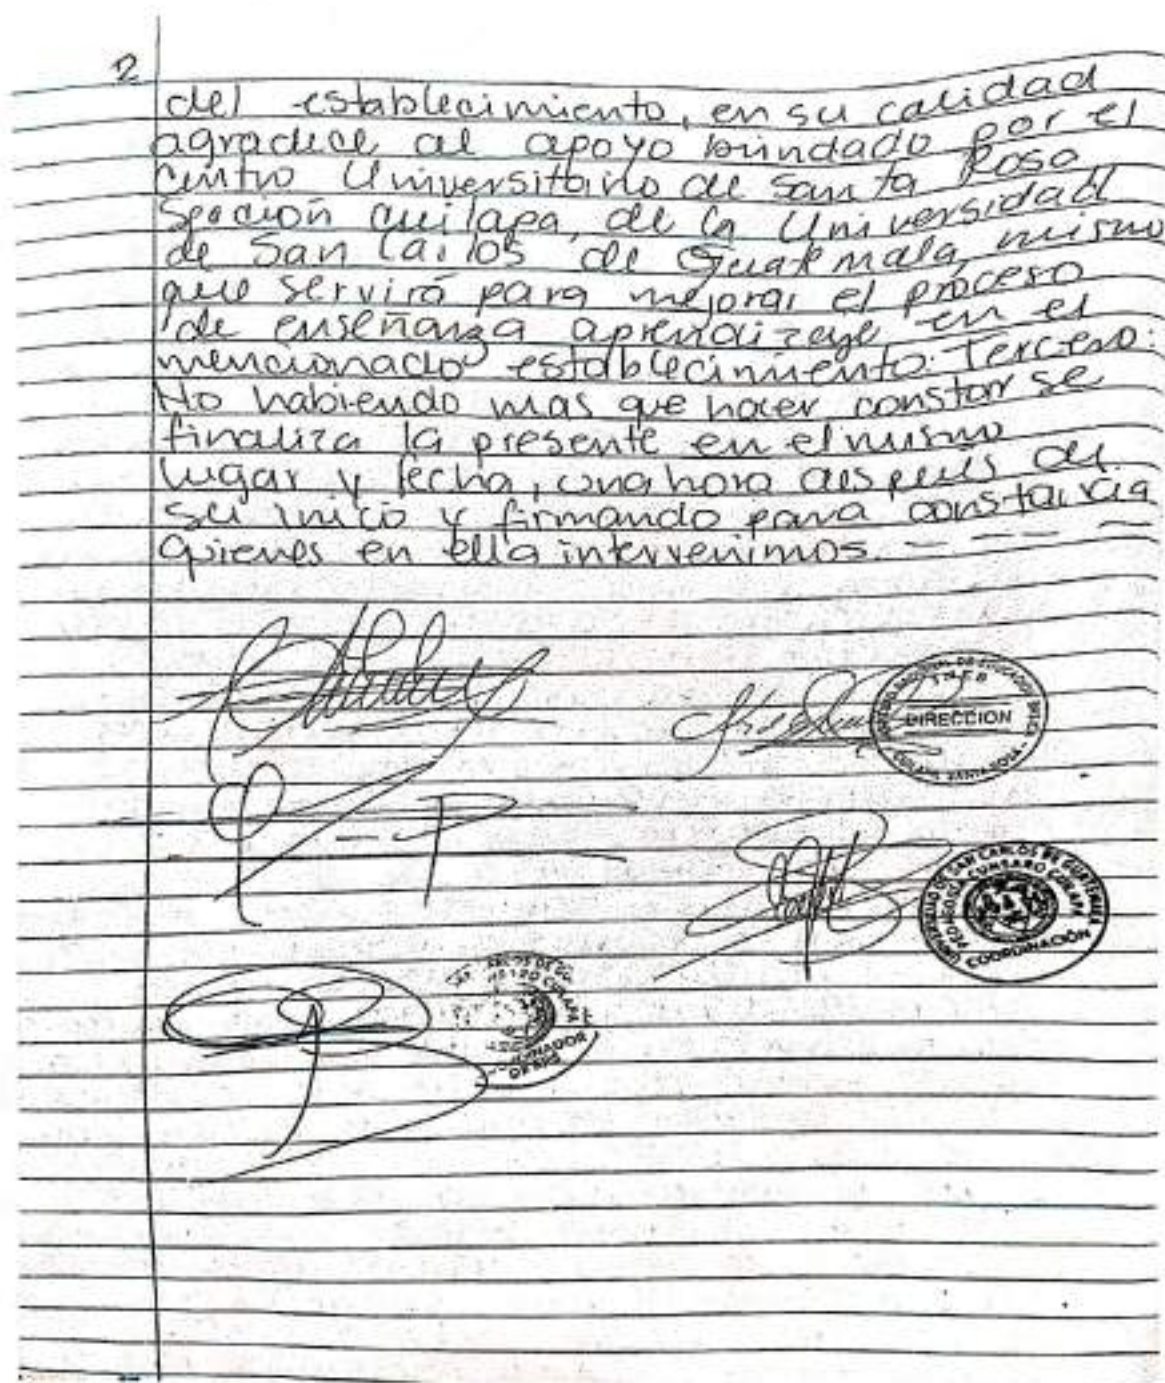 2
del establecimiento, en su calidad
agradece al apoyo brindado por el
Centro Universitario de Santa Rosa
Sección Cuilapa, de la Universidad
de San Carlos de Guatemala, mismo
que servirá para mejorar el proceso
de enseñanza aprendizaje en el
mencionado establecimiento. Tercero:
No habiendo mas que hacer constar se
finaliza la presente en el mismo
lugar y fecha, una hora después de
su inicio y firmando para constancia
quienes en ella intervenimos. - - - -
DIRECCION
UNIVERSIDAD DE SAN CARLOS DE GUATEMALA
PEDAGOGIA CUNSARO CUILAPA
COORDINACIÓN
CUILAPA